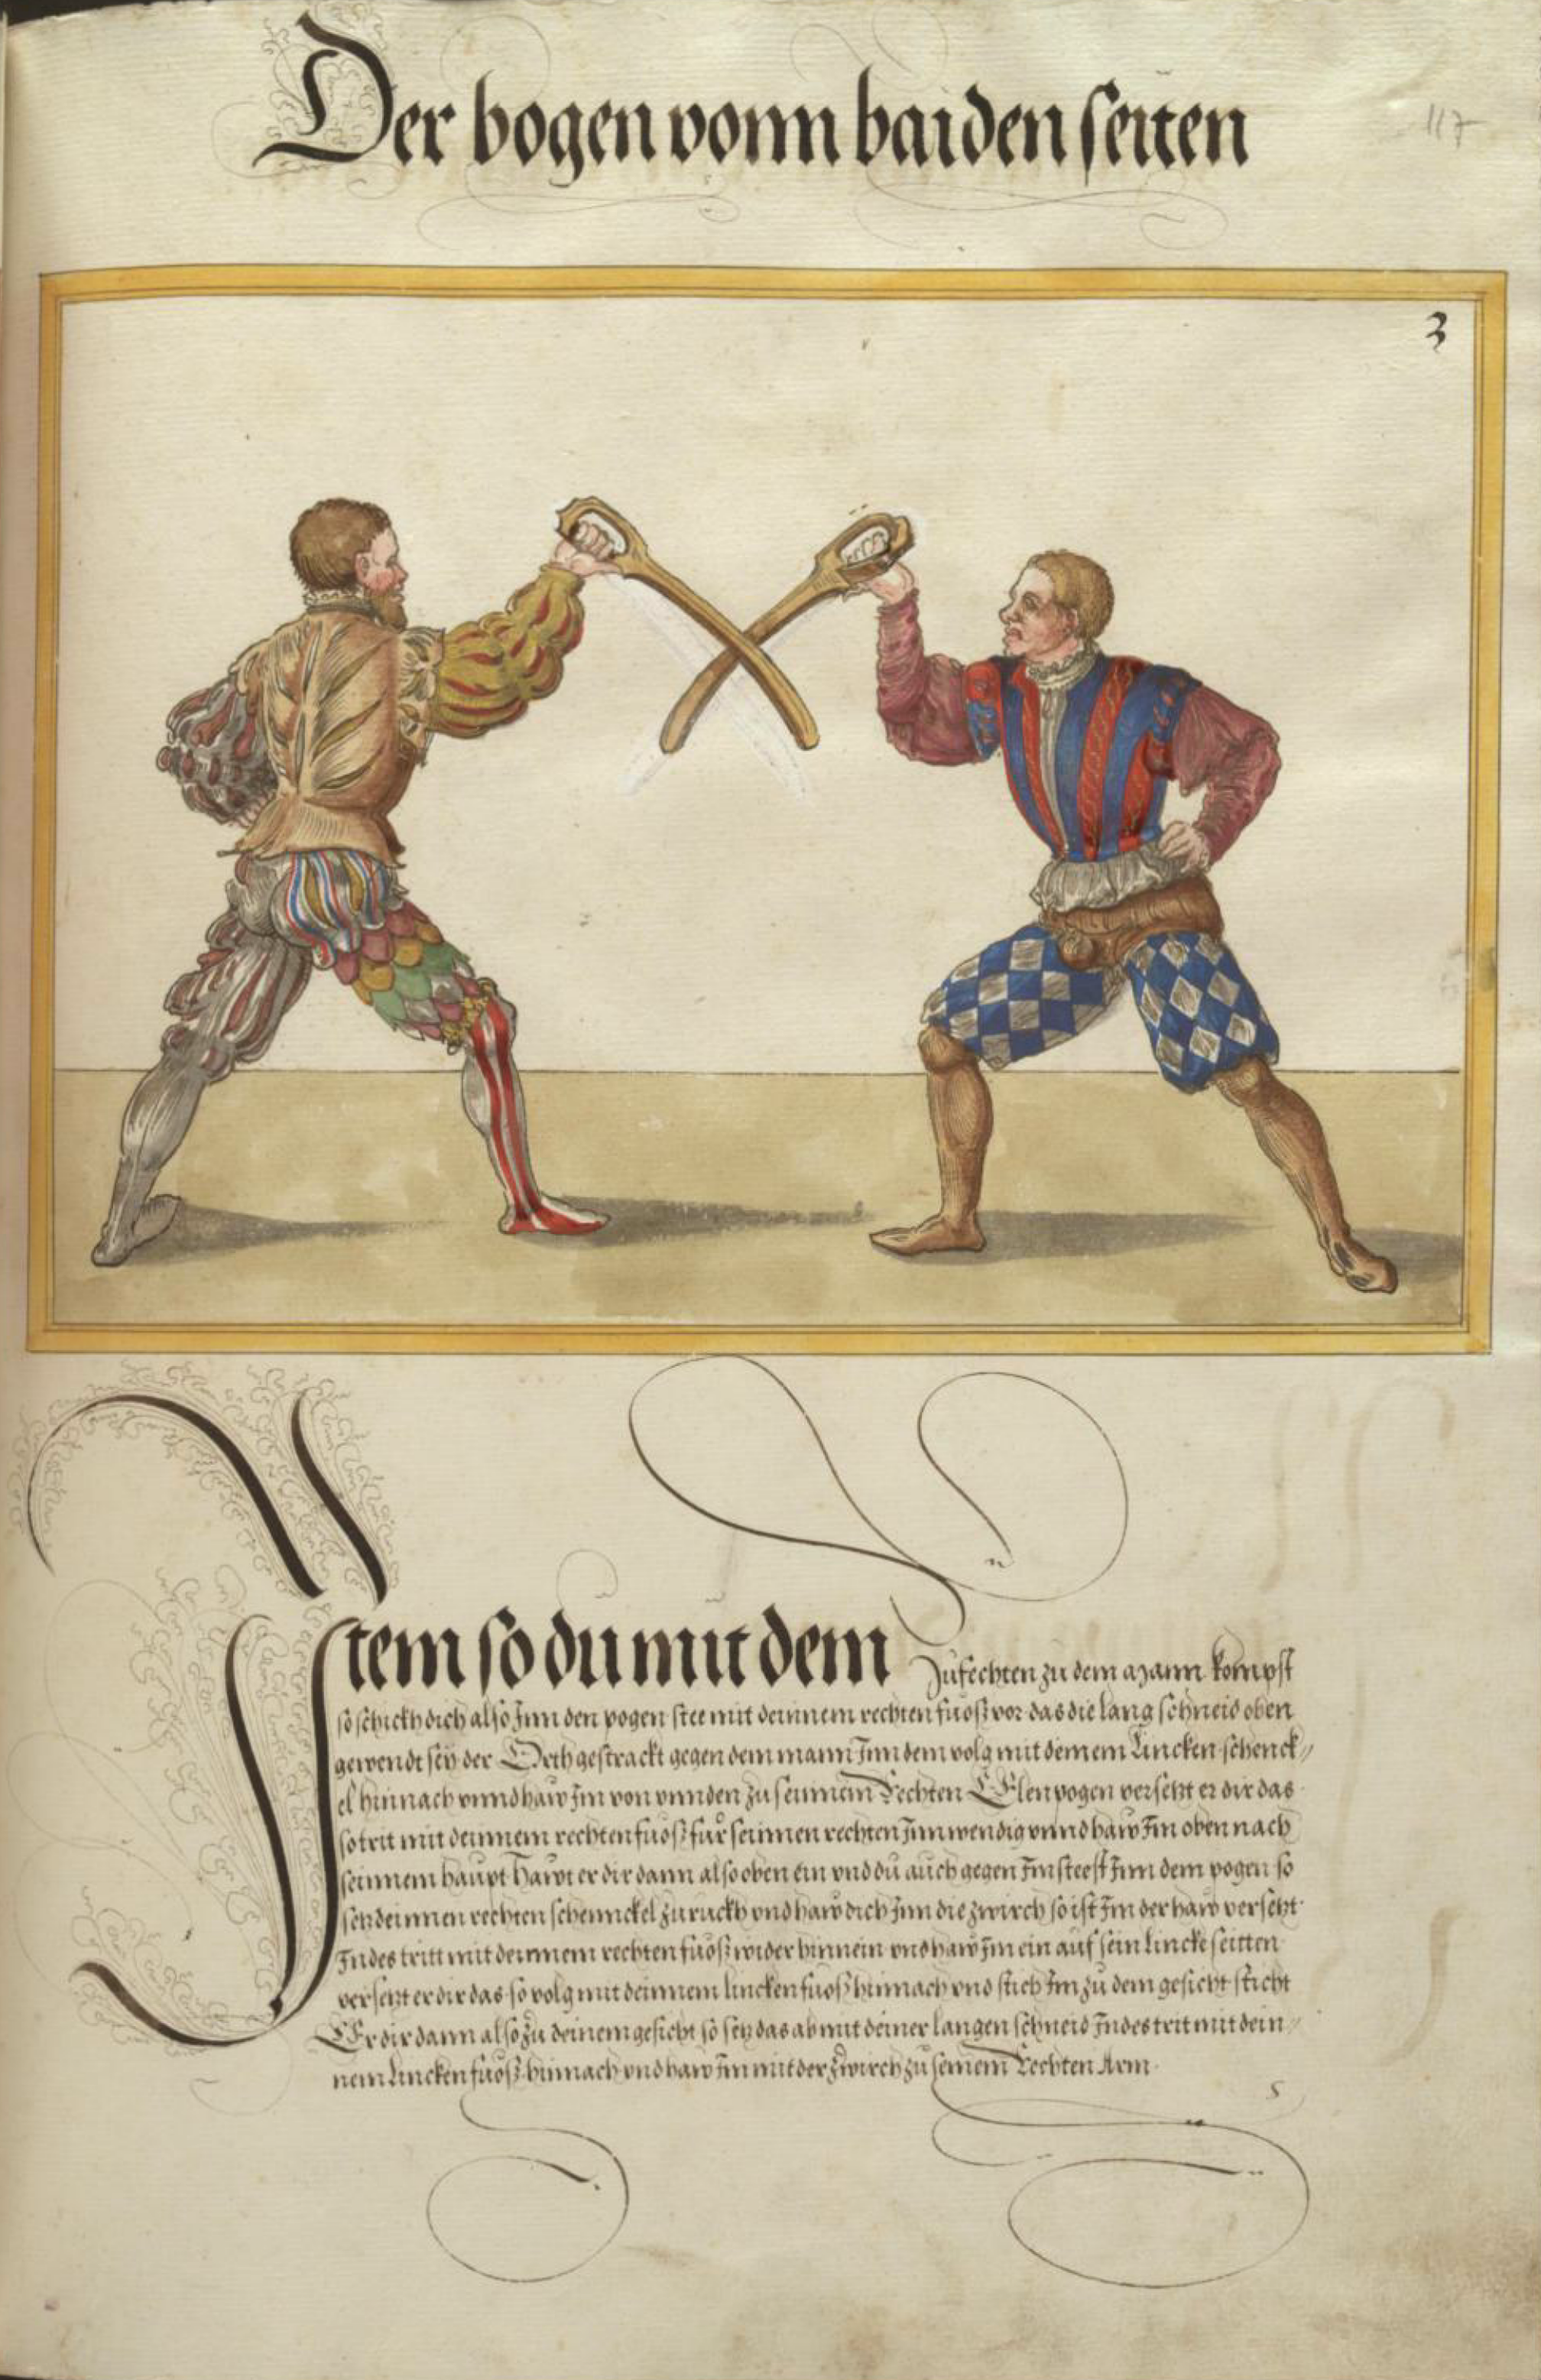 Der bogen vonn baiden seiten
117
3
Item so du mit dem Zufechten zu dem Mann kompst
so schickh dich also Inn den pogen stee mit deinnem rechten fuoß vor das die lang schneid oben
gewendt sey der Orth gestrackt gegen dem mann Inn dem volg mit deinem Lincken schenck//
el hinnach vnnd haw Im von vnnden zu seinnem Rechten Elenpogen versetzt er dir das
so trit mit deinnem rechten fuoß für seinnen rechten Innwendig vnnd haw Im oben nach
seinnem haupt Hawt er dir dann also oben ein vnd du auch gegen Im steest Inn dem pogen so
setz deinnen rechten schennckel zuruckh vnd haw dich Inn die zwirch so ist Im der haw versetzt
Indes tritt mit deinnem rechten fuoß wider hinnein vnd haw Im ein auf sein lincke seitten
versetzt er dir das so volg mit deinnem lincken fuoß hinnach vnd stich Im zu dem gesicht sticht
Er dir dann also zu deinem gesicht so setz das ab mit deiner langen schneid Indes trit mit dein//
nem Lincken fuoß hinnach vnd haw Im mit der zwirch zu seinem Rechten Arm